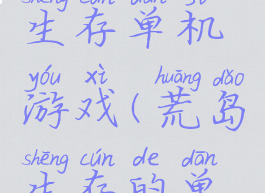 shēng cún dān jī
生存单机
yóu xì huāng dǎo
游戏(荒岛
shēng cún de dān
生存的单